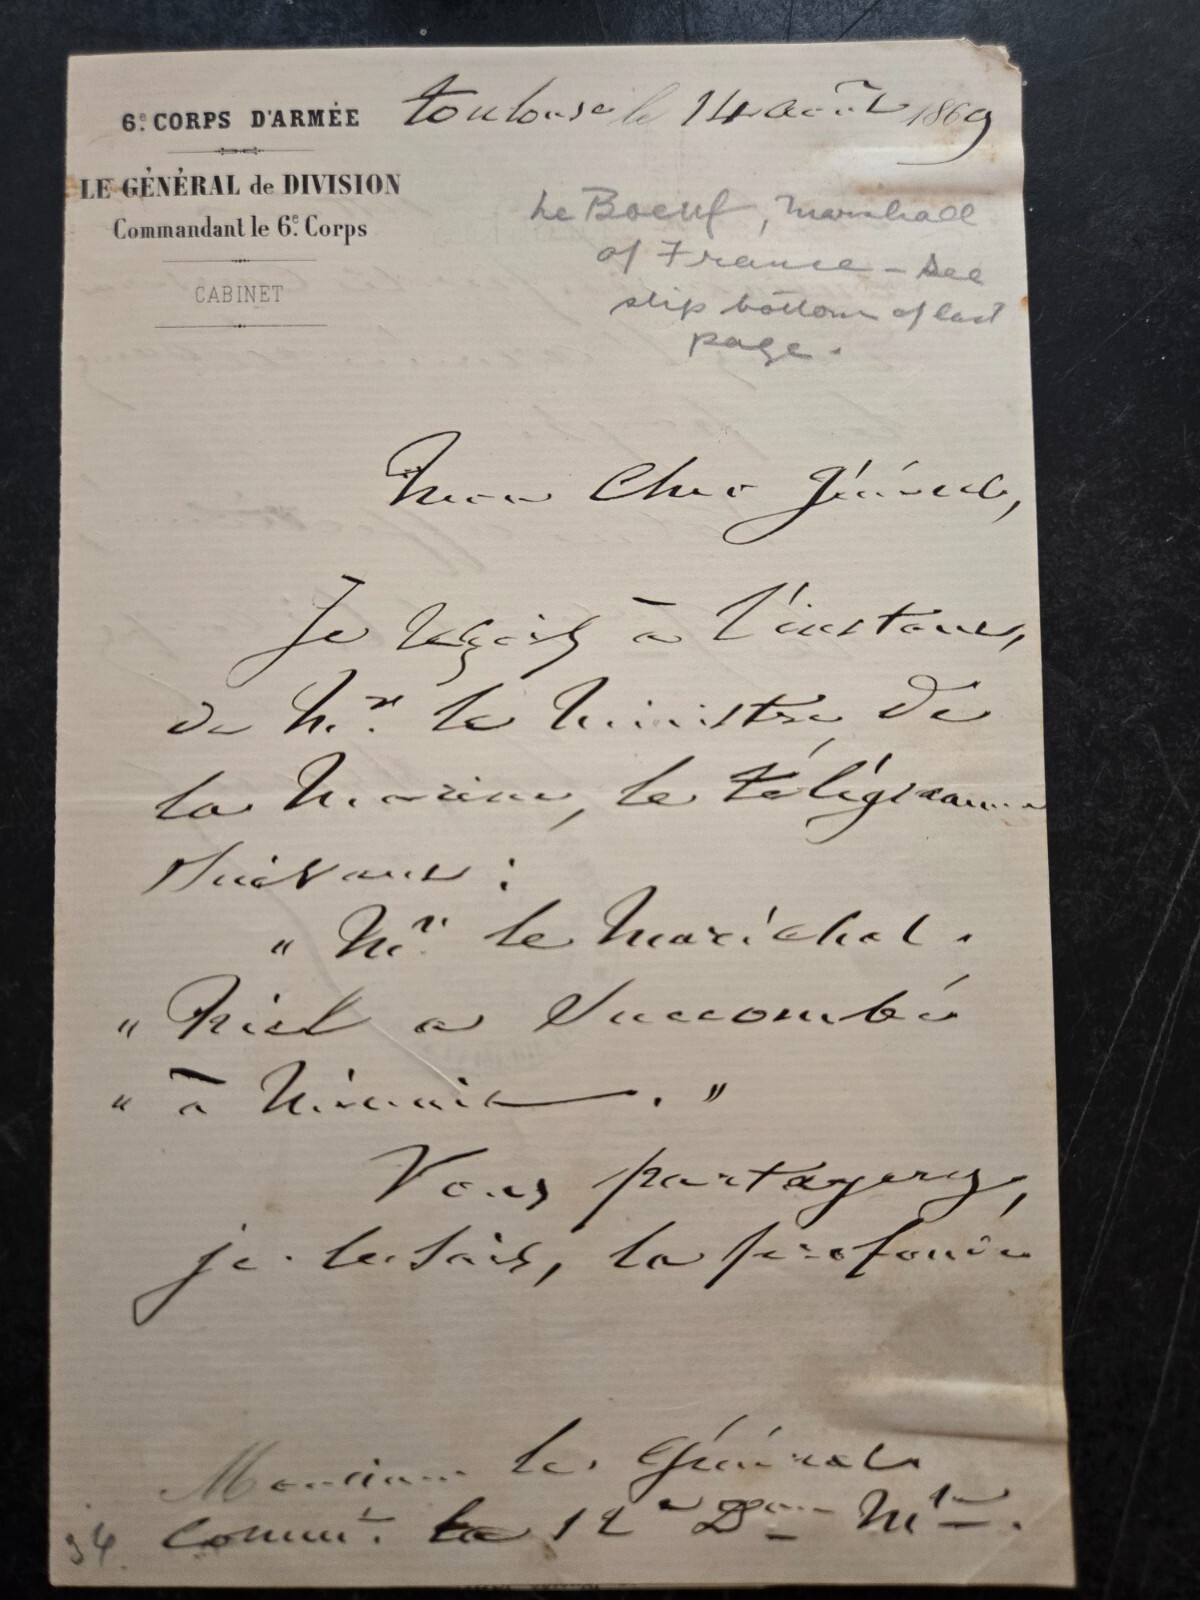 6e. CORPS D'ARMÉE
LE GÉNÉRAL de DIVISION
Commandant le 6e. Corps
CABINET
Toulouse le 14 août 1869
Le Boeuf, Marshall
of France – See
slip bottom of last
page.
Mon Cher Général,
Je reçois à l'instant,
de Mr. le Ministre de
la Marine, le télégramme
suivant :
" Mr. le Maréchal
" Niel a succombé
" à Minuit. "
Vous partagerez,
je le sais, la profonde
Monsieur le Général
Commt. la 12e Don Mre.
34.